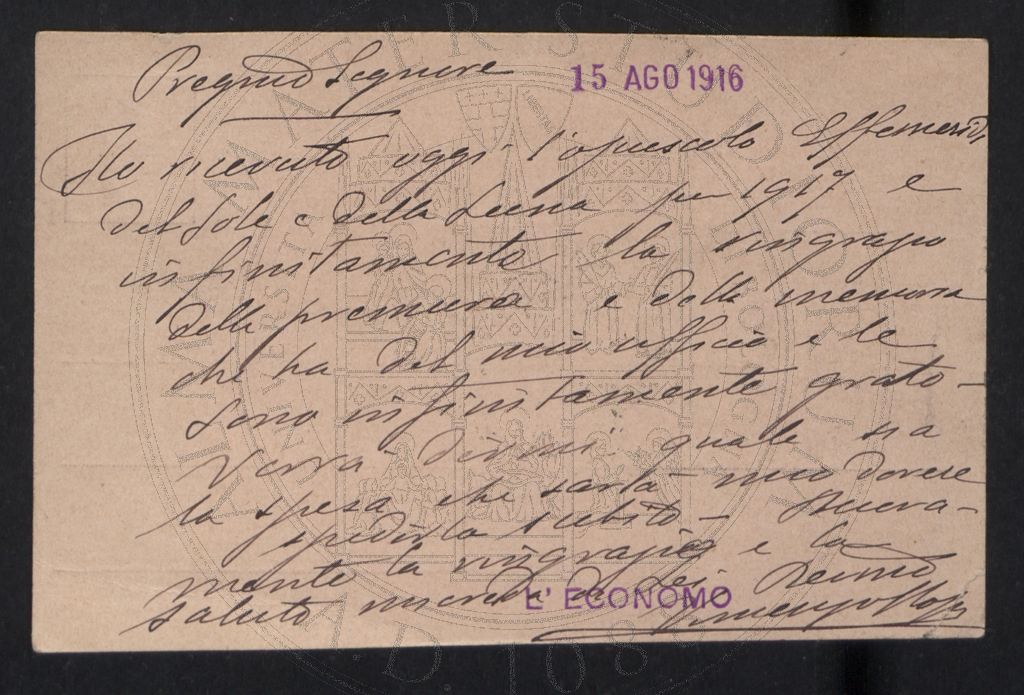 Pregmo Signore
15 AGO 1916
Ho ricevuto oggi l'opuscolo Effemeridi
del Sole e della Luna per 1917 e
infinitamente la ringrazio
della premura e della memoria
che ha del mio ufficio e le
sono infinitamente grato -
Vorrà dirmi quale sia
la spesa che sarà mio dovere
spedirla subito - Nuova-
mente la ringrazio e la
saluto di Lei Devmo
L' ECONOMO
ALMA MATER STUDIORUM
A.D. 1088